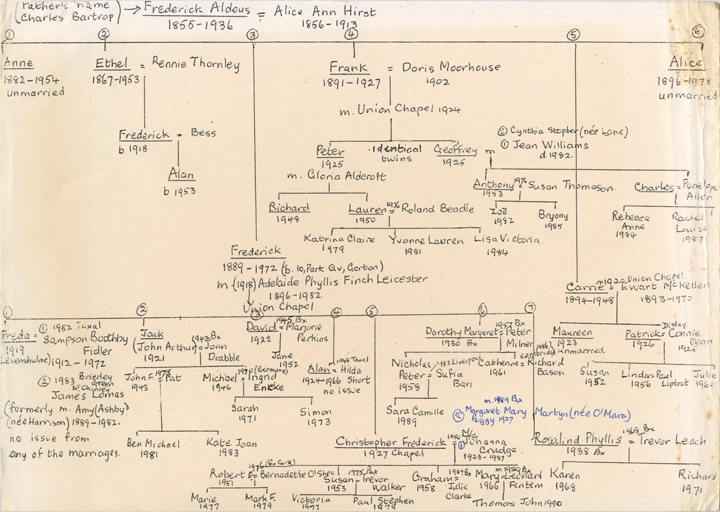 (Father's name → Frederick Aldous = Alice Ann Hirst
Charles Bartrop) 1855-1936 1856-1913
① ② ③ ④ ⑤ ⑥
Anne Ethel = Rennie Thornley Frank = Doris Moorhouse Alice
1882-1954 1867-1953 1891-1927 1902 1896-1978
unmarried unmarried
m. Union Chapel 1924
Frederick = Bess
b 1918
Peter identical Geoffrey
1925 twins 1925
② Cynthia Stopher (née Lane)
m ① Jean Williams
d 1982.
Alan
b 1953
m. Gloria Aldcroft
Anthony = Susan Thomason
1953
Charles = Penelope
Allen
Richard Lauren = Roland Beadle
1948 1950
Zoë Bryony
1982 1985
Rebecca Rachel
Anne Louise
1984 1987
Katrina Claire Yvonne Lauren Lisa Victoria
1979 1981 1984
Frederick
1889-1972 (b. 10, Park Gv, Gorton)
m (1918) Adelaide Phyllis Finch Leicester
1896-1982
Union Chapel
m 1920 Union Chapel
Carrie = Ewart McKellen
1894-1948 1893-1970
① ② ③ ④ ⑤ ⑥ ⑦
Freda = ① 1962 Taxal
1919 Sampson Boothby
Levenshulme Fidler
1912-1972
② 1983 Brierley
Green
W. Chinley
James Lomas
(formerly m. Amy (Ashby)
(née Harrison) 1889-1982.
no issue from
any of the marriages.
Jack
(John Arthur) = Joan
1921 Drabble
John F. = Pat
1943
Michael = Ingrid
1946 Encke
Ben Michael Kate Joan
1981 1983
Sarah Simon
1971 1973
David = Marjorie
1922 Perkins
Jane
1952
Alan = Hilda
1924-1966 Short
no issue
Dorothy Margaret = Peter
1930 Bx Milner
1957 Bx
Nicholas
Peter = Sufia
1958 Bari
Catherine = Richard
Bason
Sara Camille
1989
Maureen
1923
unmarried
Patrick = Connie
1926
Disley
Susan Linda = Paul Julie
1952 1956 Liptrot
m. 1989 Bx
② Margaret Mary Martyn (née O'Mara)
Peggy 1927
Christopher Frederick = ① Johanna
1927 Chapel Crudge
1928-1987
Rosalind Phyllis = Trevor Leach
1938 Bx
Robert = Bernadette O'Shea
1951
Susan = Trevor
1953 Walker
1975 Bx
Graham = Julie
1958 Clarke
Mary = Leonard
1966 Fantem
Karen Richard
1968 1971
Marie Mark F. Victoria Paul Stephen
1977 1979 1977 1979
Thomas John 1990